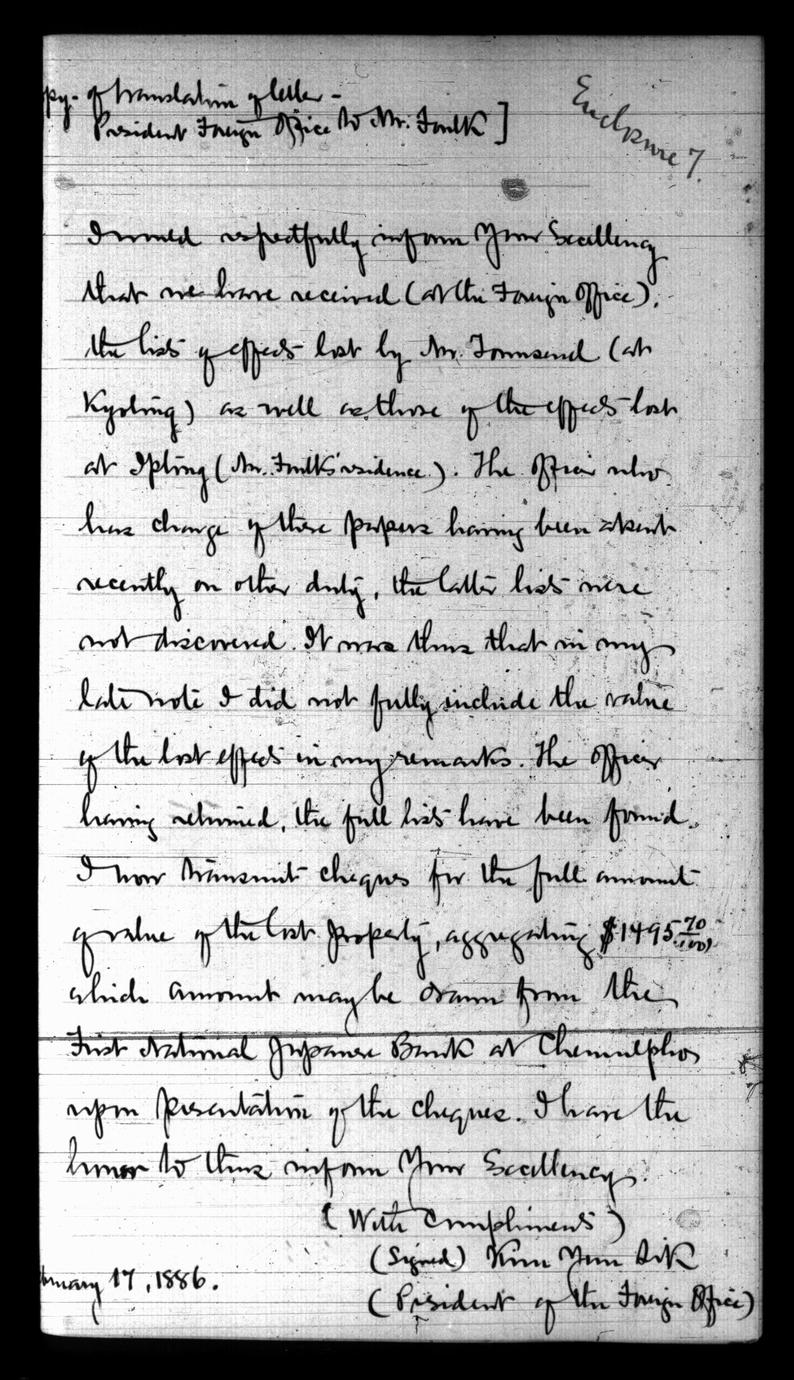 py- of translation of letter -
President Foreign Office to Mr. Foulk ]
Enclosure 7.
I would respectfully inform Your Excellency
that we have received (at the Foreign Office),
the lists of effects lost by Mr. Townsend (at
Kyoling) as well as those of the effects lost
at Ipling (Mr. Foulk's residence). The Officer who
has charge of these papers having been absent
recently on other duty, the latter lists were
not discovered. It was thus that in my
late note I did not fully include the value
of the lost effects in my remarks. The Officer
having returned, the full lists have been found.
I now transmit cheques for the full amount
of value of the lost property, aggregating $1495 70/100,
which amount may be drawn from the
First National Japanese Bank at Chemulpho
upon presentation of the cheques. I have the
honor to thus inform Your Excellency.
(With Compliments)
(Signed) Kim Yun Sik
bruary 17, 1886.
(President of the Foreign Office)